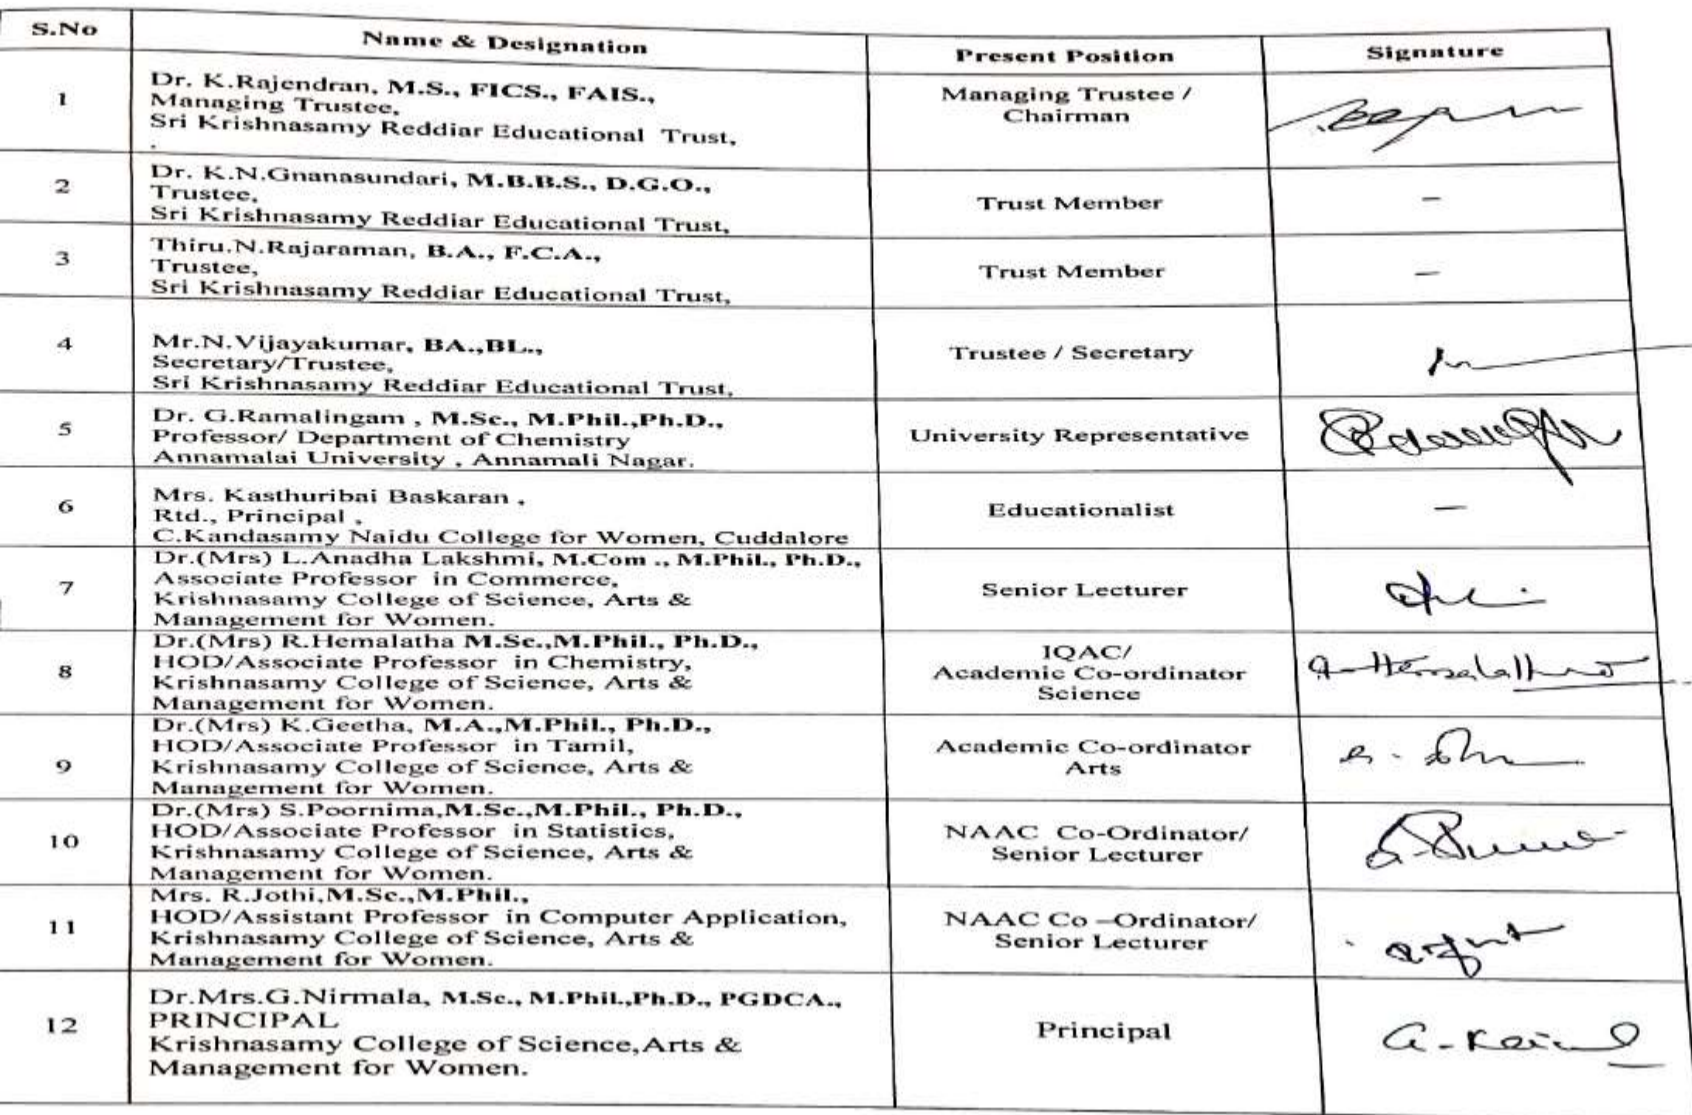 S.No
Name & Designation
Present Position
Signature
1
Dr. K.Rajendran, M.S., FICS., FAIS.,
Managing Trustee,
Sri Krishnasamy Reddiar Educational Trust,
.
Managing Trustee /
Chairman
2
Dr. K.N.Gnanasundari, M.B.B.S., D.G.O.,
Trustee,
Sri Krishnasamy Reddiar Educational Trust,
Trust Member
–
3
Thiru.N.Rajaraman, B.A., F.C.A.,
Trustee,
Sri Krishnasamy Reddiar Educational Trust,
Trust Member
–
4
Mr.N.Vijayakumar, BA.,BL.,
Secretary/Trustee,
Sri Krishnasamy Reddiar Educational Trust,
Trustee / Secretary
5
Dr. G.Ramalingam , M.Sc., M.Phil.,Ph.D.,
Professor/ Department of Chemistry
Annamalai University , Annamali Nagar.
University Representative
6
Mrs. Kasthuribai Baskaran ,
Rtd., Principal ,
C.Kandasamy Naidu College for Women, Cuddalore
Educationalist
–
7
Dr.(Mrs) L.Anadha Lakshmi, M.Com ., M.Phil., Ph.D.,
Associate Professor in Commerce,
Krishnasamy College of Science, Arts &
Management for Women.
Senior Lecturer
8
Dr.(Mrs) R.Hemalatha M.Sc.,M.Phil., Ph.D.,
HOD/Associate Professor in Chemistry,
Krishnasamy College of Science, Arts &
Management for Women.
IQAC/
Academic Co-ordinator
Science
9
Dr.(Mrs) K.Geetha, M.A.,M.Phil., Ph.D.,
HOD/Associate Professor in Tamil,
Krishnasamy College of Science, Arts &
Management for Women.
Academic Co-ordinator
Arts
10
Dr.(Mrs) S.Poornima,M.Sc.,M.Phil., Ph.D.,
HOD/Associate Professor in Statistics,
Krishnasamy College of Science, Arts &
Management for Women.
NAAC Co-Ordinator/
Senior Lecturer
11
Mrs. R.Jothi,M.Sc.,M.Phil.,
HOD/Assistant Professor in Computer Application,
Krishnasamy College of Science, Arts &
Management for Women.
NAAC Co –Ordinator/
Senior Lecturer
12
Dr.Mrs.G.Nirmala, M.Sc., M.Phil.,Ph.D., PGDCA.,
PRINCIPAL
Krishnasamy College of Science,Arts &
Management for Women.
Principal